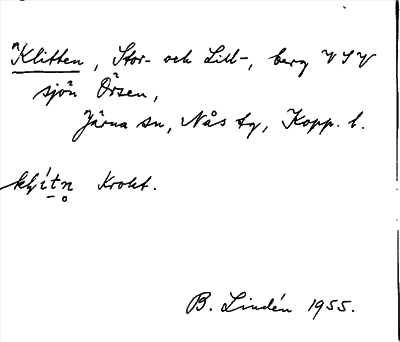 Klitten, Stor- och Lill-, berg V S V
sjön Örsen,
Järna sn, Nås tg, Kopp. l.
klítn̥ Krokt.
B. Lindén 1955.